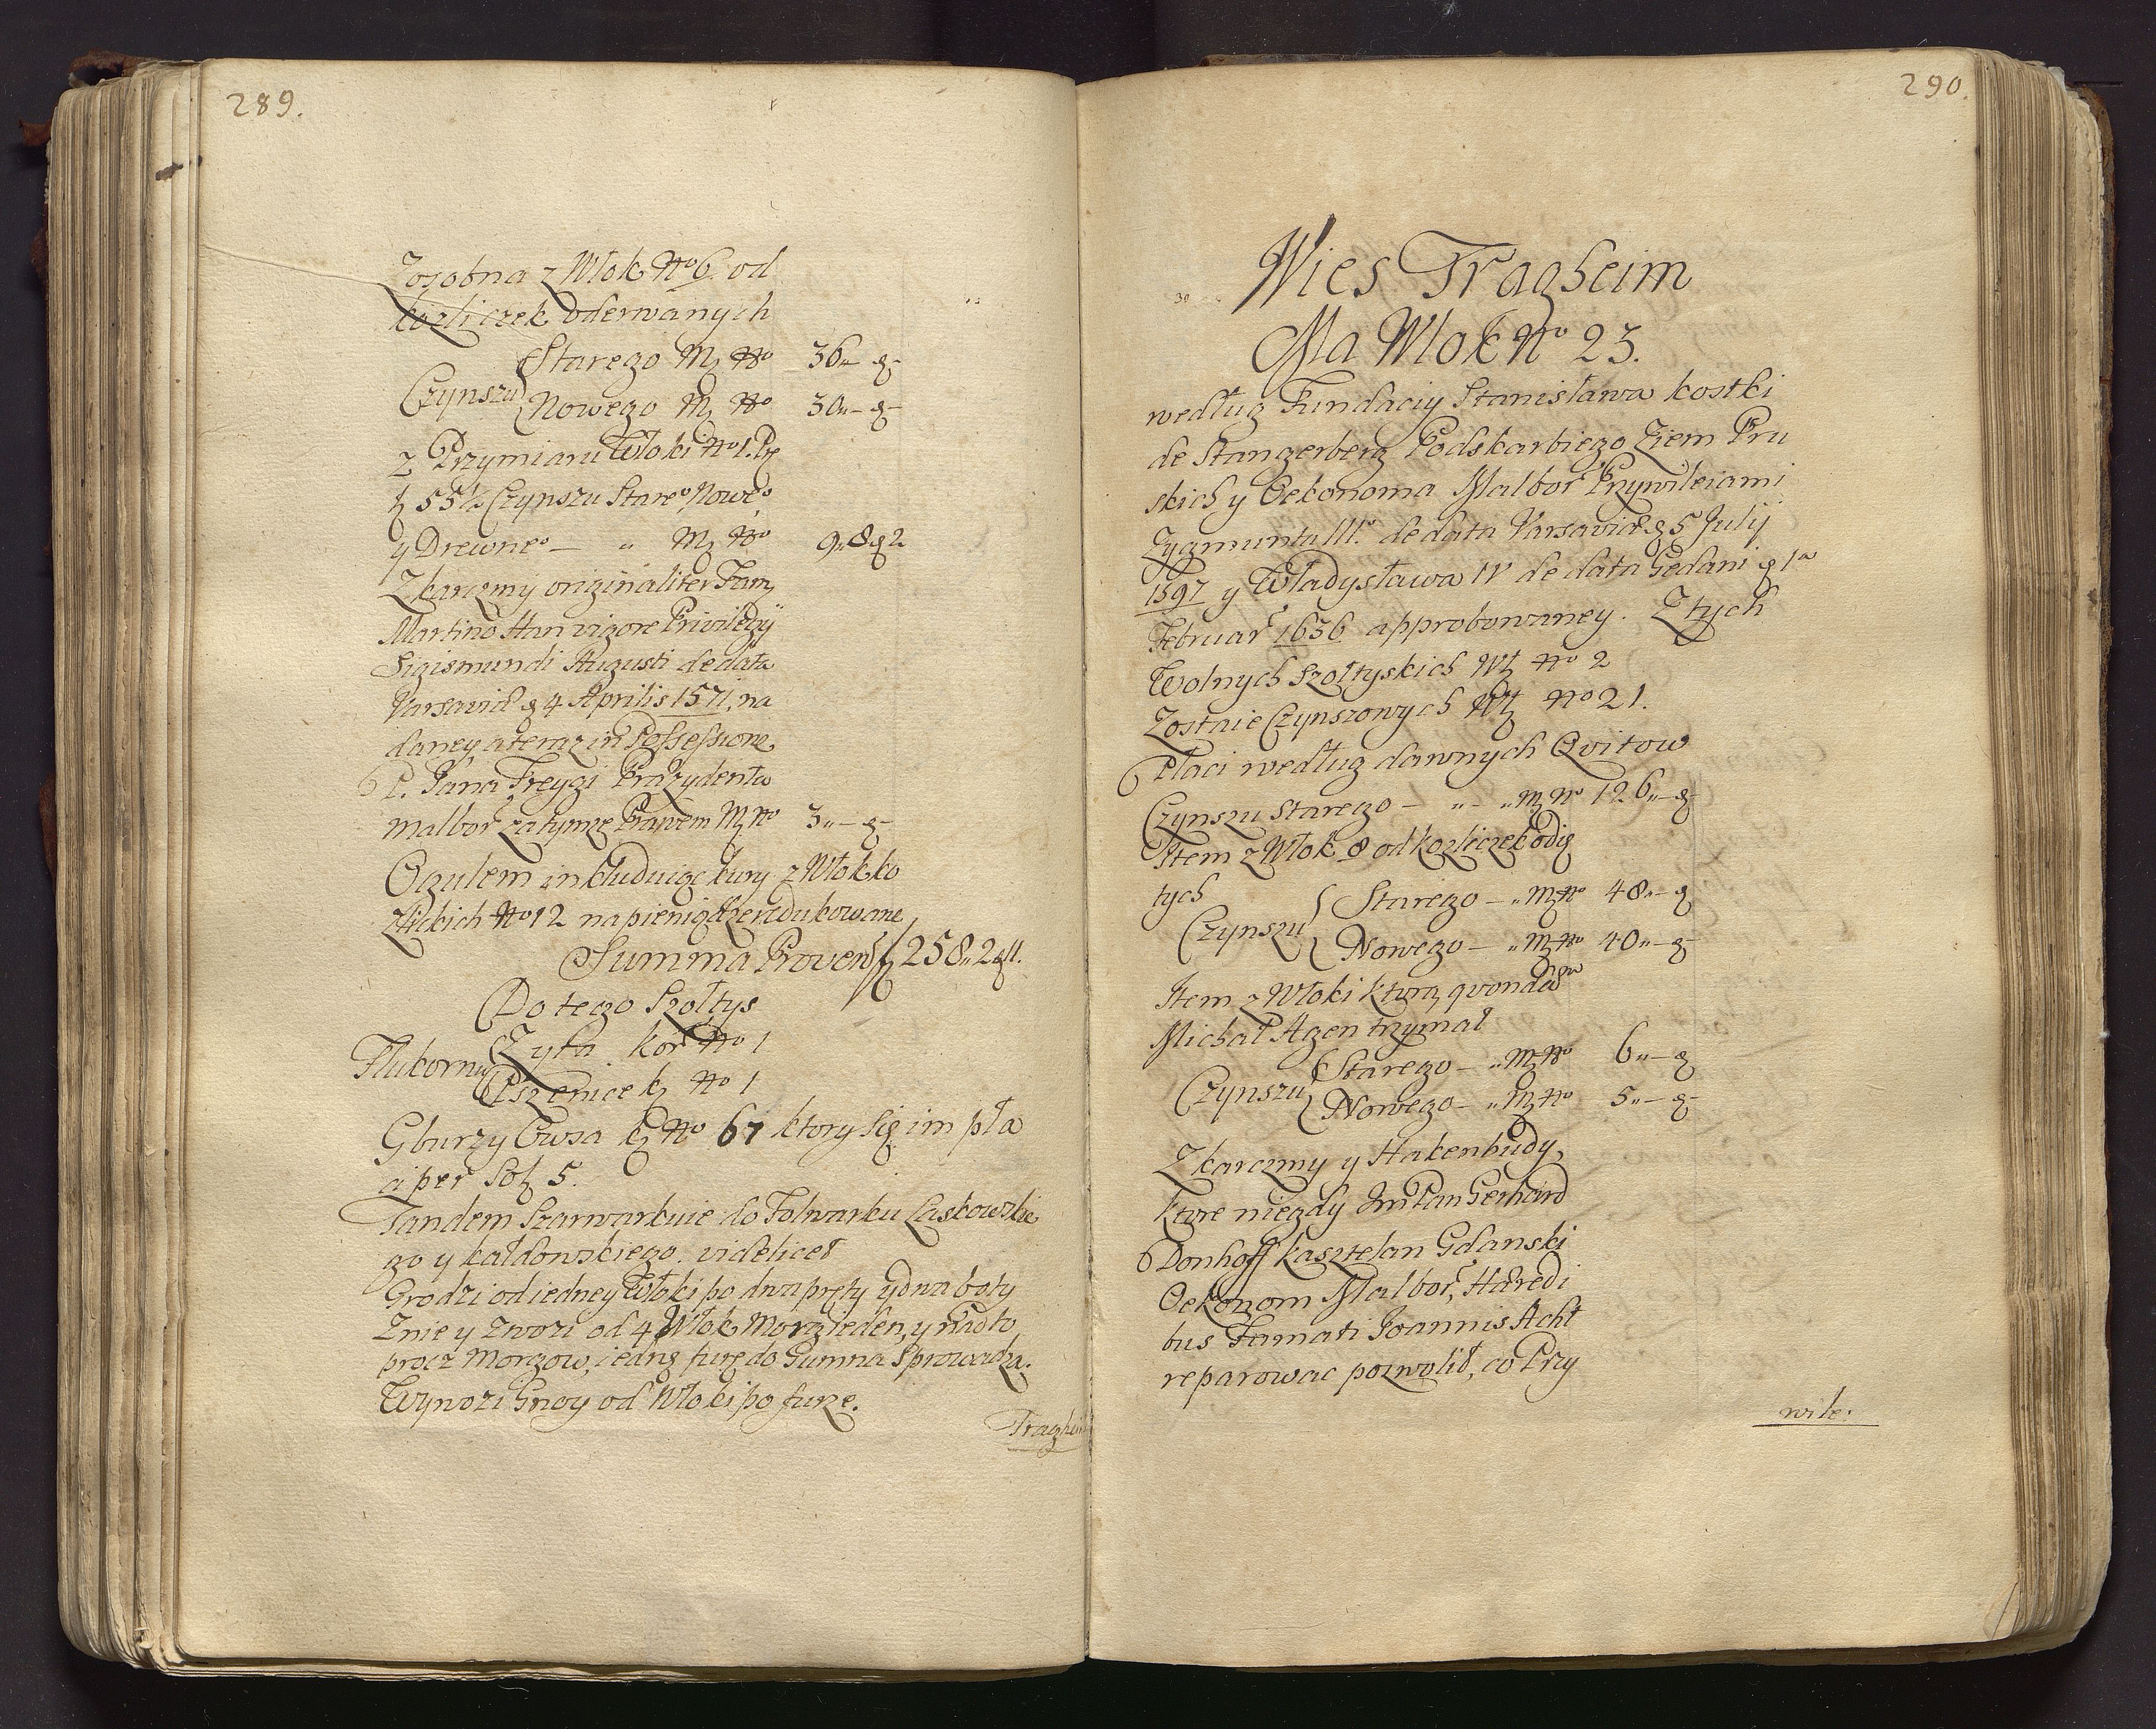 289.
Zosobna z Włok No 6. od
kozliczek oderwanych
Czynszu Starego M No 36 „ — g —
Nowego M No 30 „ — g —
z Przymiaru Włoki No 1. Pr
ę 55½ Czynszu Stareo Noweo
y Drewneo — „ M No 9 „ 8 g 2
Z karczmy originaliter Fam
Martino Han vigore Privilegÿ
Sigismundi Augusti de data
Varsaviæ g 4 Aprilis 1571, na
daney, a teraz in Possessione
P. Jana Freygi Præzydenta
Malbor za tymże Prawem M No 3 „ — g —
Ogulem inkluduiąc kury z Włok ko
zlickich No 12 na pieniądze redukowane
Summa Proven f 258 „ 2 g 11.
Do tego Szołtys
Plukornu Zyta kor No 1
Pszenice k No 1
Gburzy Owsa k No 67 ktory się im pła
ci per Sol 5.
Tandem Szarwarkuie do Folwarku Laskowskie
go y kałdowskiego. videlicet
Grodzi od iedney Włoki po dwa pręty y dwa boty
Znie y zwozi od 4 Włok Morg ieden, y nadto
procz Morgow, iedną furę do Gumna Sprowadza.
Wywozi Gnoy od Włoki po furze.
Tragheim
290.
Wies Tragheim
Ma Włok No 23.
według Fundaciy Stanisława kostki
de Stangerberg Podskarbiego Ziem Pru
skich y Oekonoma Malbor Przywileiami
Zygmunta III. de data Varsaviæ g 5 Julij
1597 y Władysława IV de data Gedani g 1a
Februar 1636 approbowaney. Z tych
Wolnych Szołtyskich Wł No 2
Zostaie Czynszowych Wł No 21.
Płaci według dawnych Qvitow
Czynszu Starego — „ — „ M No 126 „ — g —
Item z Włok 8 od kozliczek odię
tych
Czynszu Starego — „ M No 48 „ — g
Nowego — „ M No 40 „ — g —
Item z Włoki ktorą qvondam
Michał Agen trzymał
Czynszu Starego — „ M No 6 „ — g
Nowego — „ M No 5 „ — g —
Z karczmy y Hakenbudy,
ktore niegdy Jm Pan Gerhard
Donhoff kasztelan Gdanski
Oekonom Malbor, Hæredi
bus Famati Joannis Acht
reparowac pozwolił, co Przy
wile: